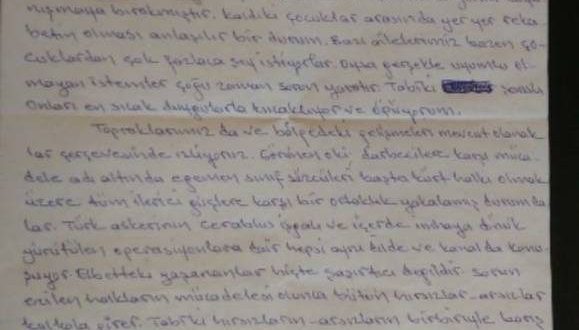 nışmaya bırakmıştır. Kaldıki çocuklar arasında yer yer reka
betin olması anlaşılır bir durum. Bazı ailelerimiz bazen ço-
cuklardan çok fazlaca şey istiyorlar. Oysa gerçekle uyumlu ol-
mayan istemler çoğu zaman sorun yaratır. Tabiki
onları en sıcak duygularla kucaklıyor ve öpüyorum.
Topraklarımız da ve bölgedeki gelişmeleri mevcut olanak
lar çerçevesinde izliyoruz. Görünen oki darbecilere karşı müca-
dele adı altında egemen sınıf sözcüleri başta kürt halkı olmak
üzere tüm ilerici güçlere karşı bir ortaklık yakalamış durumda
lar. Türk askerinin Cerablus işgali ve içerde imhaya dönük
yürütülen operasyonlara dair hepsi aynı dilde ve kanal da konu
şuyor. Elbetteki yaşananlar hiçte şaşırtıcı değildir. Sorun
ezilen halkların mücadelesi olunca bütün hırsızlar-arsızlar
kolkola girer. Tabiki hırsızların-arsızların birbiriyle barış